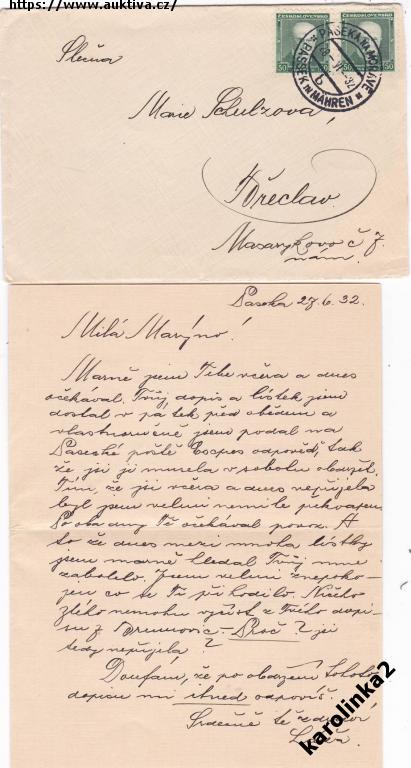 https://www.auktiva.cz/
ČESKOSLOVENSKO
ČESKOSLOVENSKO
50
50
PASEKA NA MORAVĚ
PASSEK IN MÄHREN
b
Slečna
Marie Schulzova,
Břeclav.
Masarykovo č 7.
nám.
Paseka 27.6.32.
Milá Maryno!
Marně jsem Tebe včera a dnes
očekával. Tvůj dopis a lístek jsem
dostal v pátek před obědem a
vlastnoručně jsem podal na
Pasecké poště Expres odpověď, tak
že jsi ji musela v sobotu obdržet.
Tím, že jsi včera a dnes nepřijela
byl jsem velmi nemile překvapen.
Po oba dny Tě očekával povoz. A
to že dnes mezi mnoha lístky
jsem marně hledal Tvůj mne
zabolelo. Jsem velmi znepoko-
jen co se Ti přihodilo. Ničeho
zlého nemohu vyčíst z Tvého dopi-
su z Brumovic. Proč? jsi
tedy nepřijela?
Doufám, že po obdržení tohoto
dopisu mi ihned odpovíš.
Srdečně tě zdraví
karolinka2